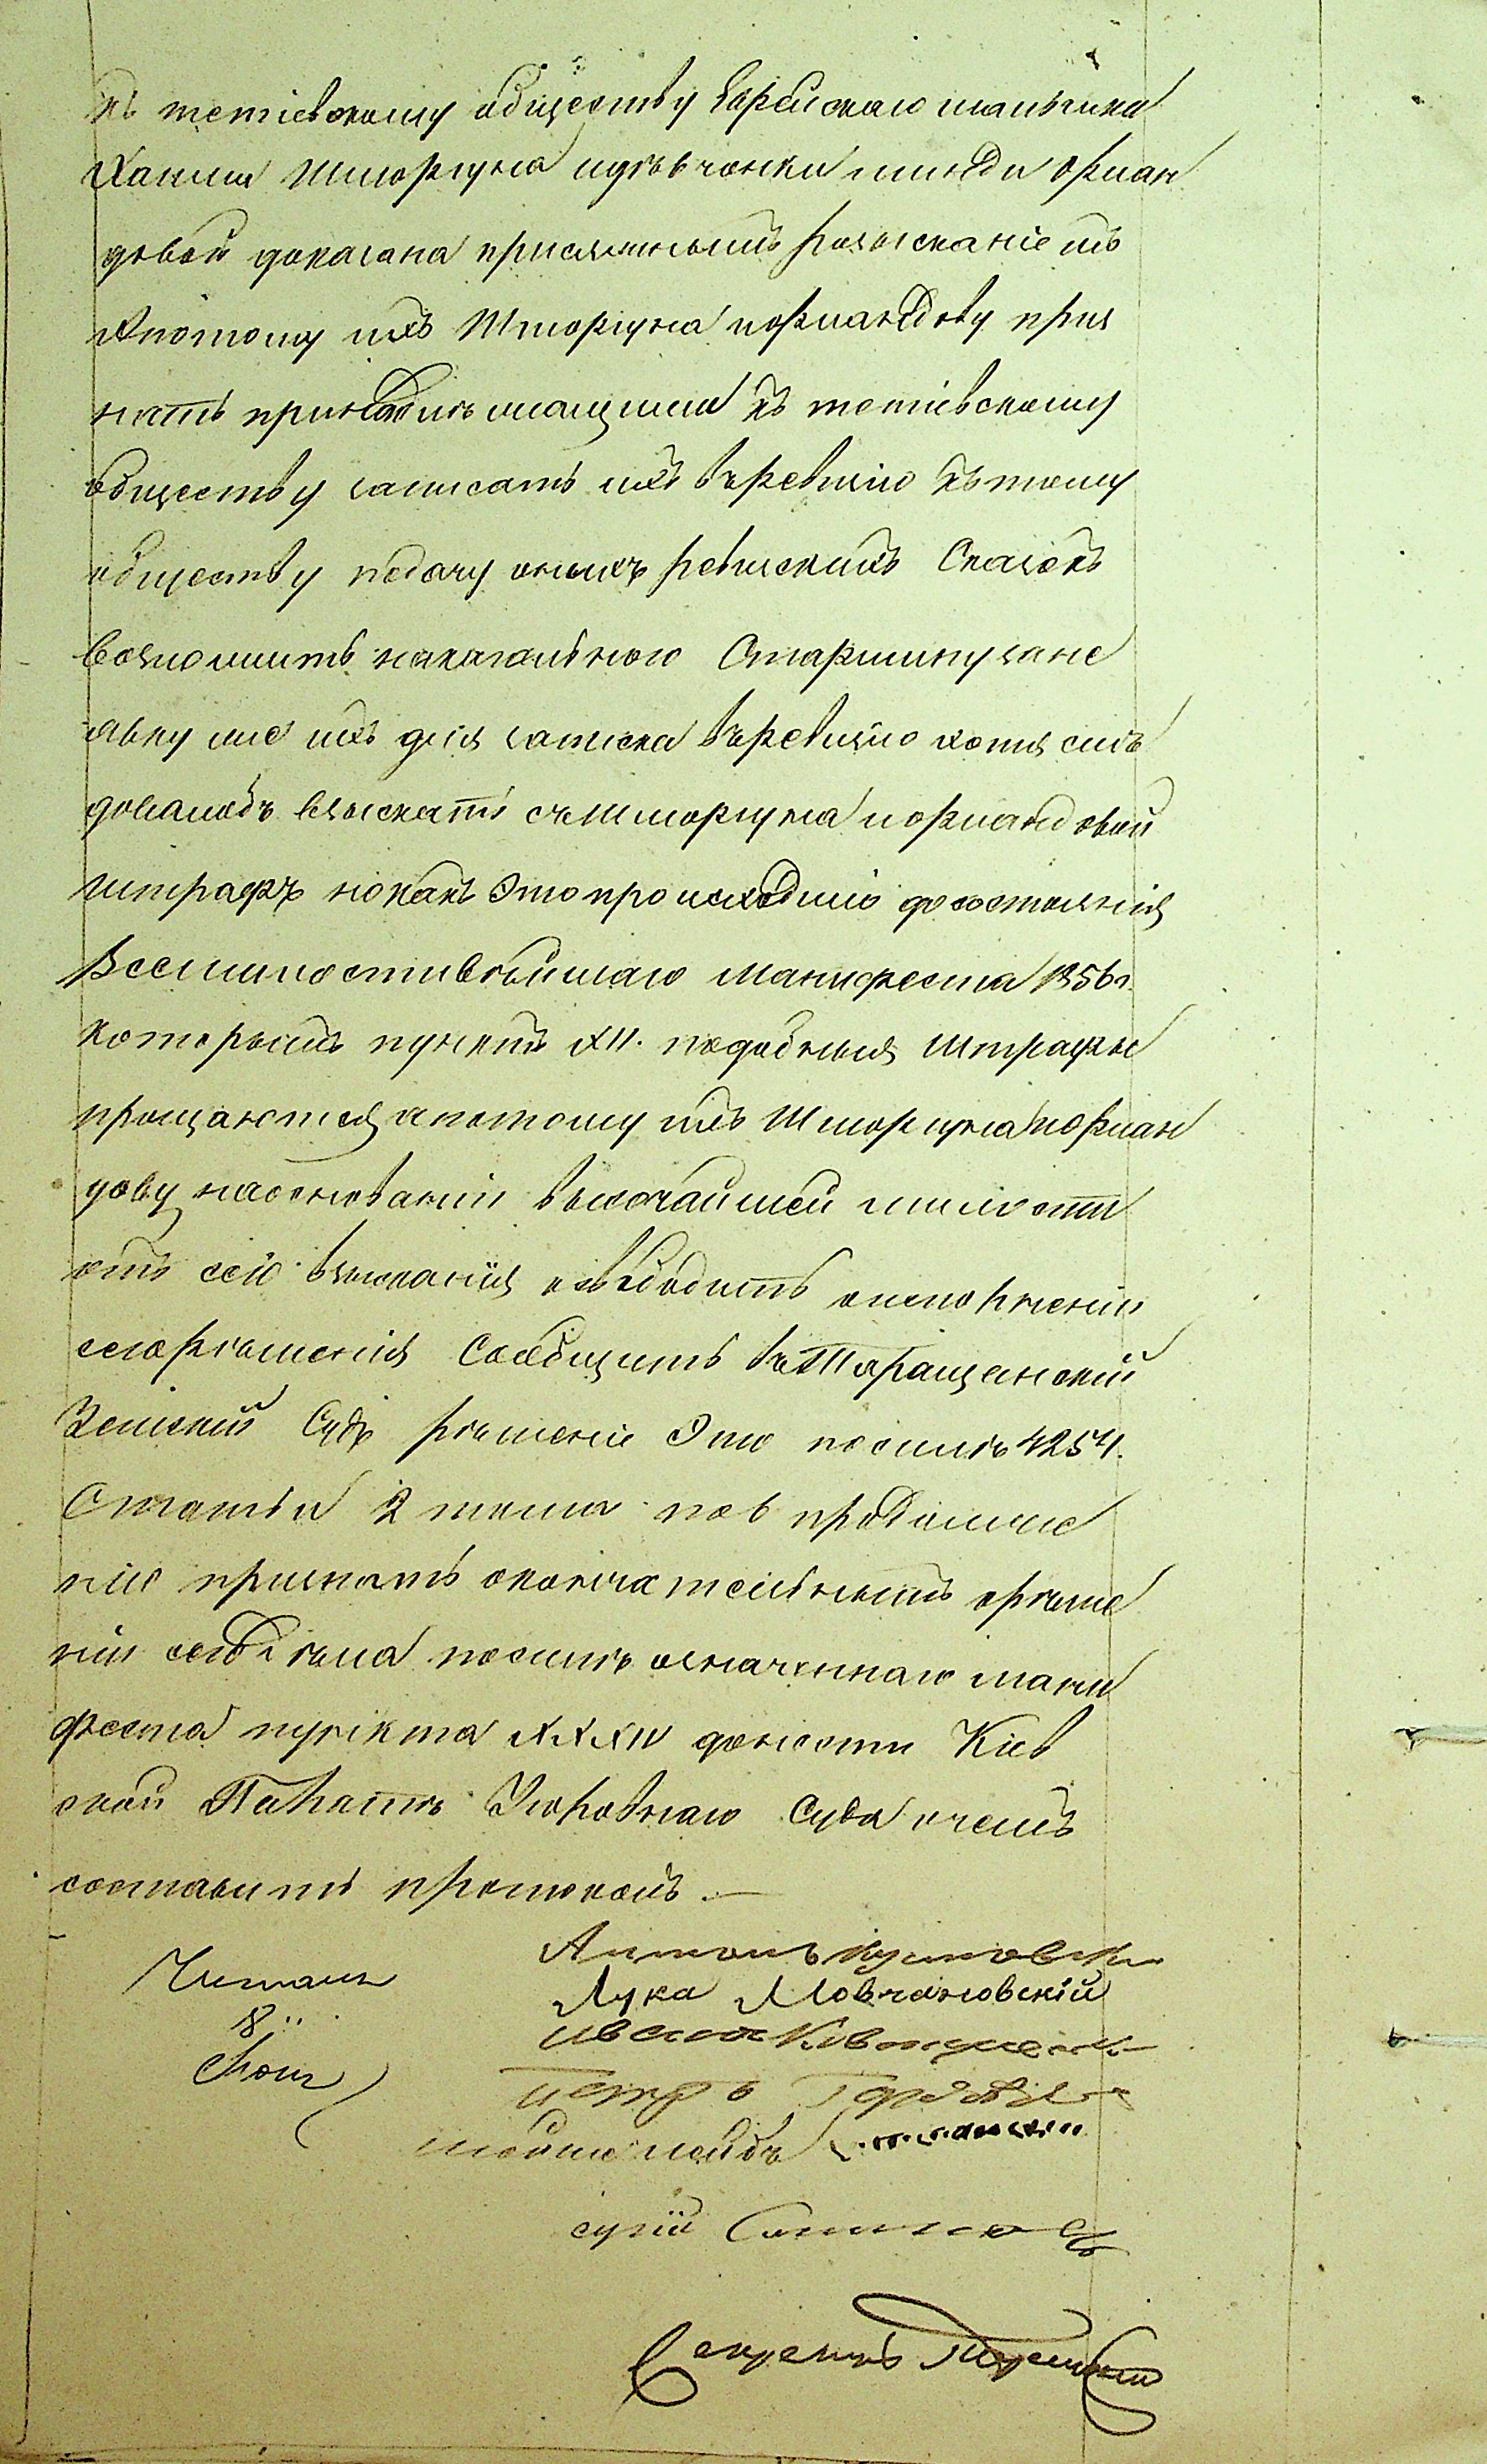 къ тетіевскому обществу Еврейскаго мальчика
Хаима Шморгуна идѣвчонки минди Фурман
довой доказана присяжнымъ розысканіемъ
апотому ихъ Шморгуна иФурмандову приз
нать принадлежащими къ тетіевскому
обществу записать ихъ въревизію къ тому
обществу подачу оныхъ ревискихъ Сказокъ
возложить накагальнаго Старшину зане
явку же ихъ для записка въревизію хотя слѣ
довалобъ взыскать съШморгуна иФурмандовой
штрафъ нокакъ Это происходило до состоянія
Всемилостивѣйшаго манифеста 1856 г.
которымъ пунктъ XII. подобныя штрафы
прощаются апотому ихъ Шморгуна иФурман
дову наосновании высочайшей милости
отъ сего взысканія освободить оисполненіи
сегорѣшенія Сообщить въТаращанскій
Земскій Судъ рѣшеніе Это посилѣ 4254.
Статьи 2 тома пов продолже
нію признать окончательнымъ орѣше
ніи сегодѣла посилѣ означеннаго мани
феста пункта XXXIV донести Кіев
ской Палатѣ Уголовнаго Суда очемъ
составить протоколъ.—
Читалъ
Антонъ
Лука Мовчановскій
Петръ
Секретарь